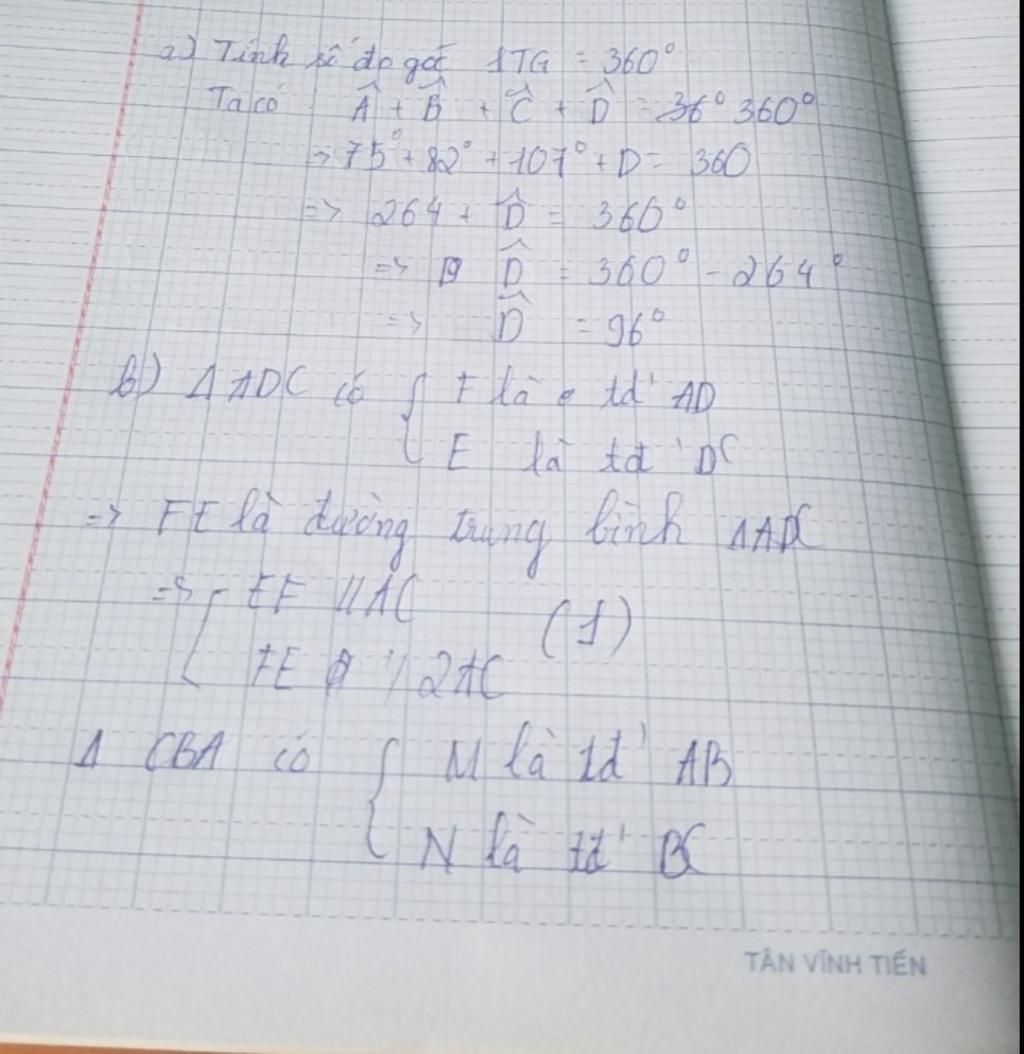 a) Tính số đo góc 1TG = 360°
Ta có Â + B̂ + Ĉ + D̂ = 36° 360°
=> 75° + 82° + 107° + D = 360
=> 264 + D̂ = 360°
=> D̂ = 360° - 264°
=> D̂ = 96°
b) Δ ADC có { F là tđ' AD
E là tđ' DC
=> FE là đường trung bình ΔADC
=> { EF // AC
FE 1/2AC (1)
Δ CBA có { M là tđ' AB
N là tđ' BC
TÂN VĨNH TIẾN